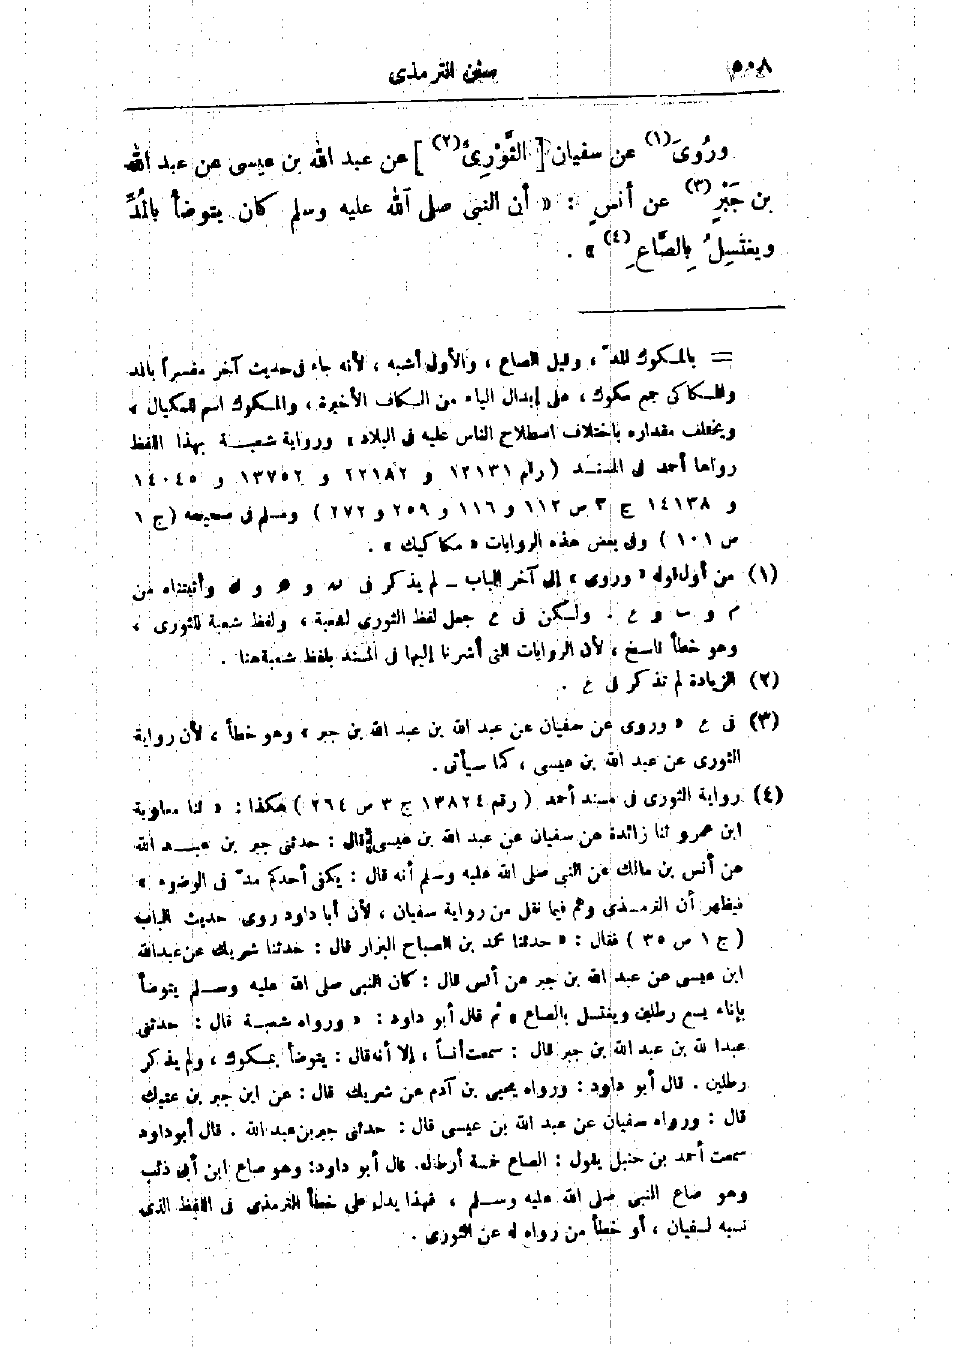 ٥٠٨
سنن الترمذى
ورُوِىَ (١) عن سفيان [ الثَّوْرِىِّ (٢) ] عن عبد الله بن عيسى عن عبد الله
بن جَبْرٍ (٣) عن أنسٍ : « أن النبى صلى الله عليه وسلم كان يتوضأ بالمُدِّ
ويغتسلُ بِالصَّاعِ (٤) » .
= بالمكوك المد ، وقيل الصاع ، والأول أشبه ، لأنه جاء فى حديث آخر مفسراً بالمد
والمكاكى جمع مكوك ، على إبدال الياء من الكاف الأخيرة ، والمكوك اسم للمكيال ،
ويختلف مقداره باختلاف اصطلاح الناس عليه فى البلاد » ورواية شعبة بهذا اللفظ
رواها أحمد فى المسند ( رقم ١٢١٣١ و ٢٢١٨٢ و ١٣٧٥٢ و ١٤٠٤٥
و ١٤١٣٨ ج ٣ ص ١١٢ و ١١٦ و ٢٥٩ و ٢٧٢ ) ومسلم فى صحيحه ( ج ١
ص ١٠١ ) وفى بعض هذه الروايات « مكاكيك » .
(١) من أول قوله « وروى » إلى آخر الباب ــ لم يذكر فى س و ه و ك وأثبتناه من
م و ب و ع . ولكن فى ع جعل لفظ الثورى لشعبة ، ولفظ شعبة للثورى ،
وهو خطأ ناسخ ، لأن الروايات التى أشرنا إليها فى المسند بلفظ شعبة هنا .
(٢) الزيادة لم تذكر فى ع .
(٣) فى ع « وروى عن سفيان عن عبد الله بن عبد الله بن جبر » وهو خطأ ، لأن رواية
الثورى عن عبد الله بن عيسى ، كما سيأتى .
(٤) رواية الثورى فى مسند أحمد ( رقم ١٣٨٢٤ ج ٣ ص ٢٦٤ ) هكذا : « ثنا معاوية
ابن عمرو ثنا زائدة عن سفيان عن عبد الله بن عيسى قال : حدثنى جبر بن عبد الله
عن أنس بن مالك عن النبى صلى الله عليه وسلم أنه قال : يكفى أحدكم مدّ فى الوضوء »
فيظهر أن الترمذى وهم فيما نقل من رواية سفيان ، لأن أبا داود روى حديث الباب
( ج ١ ص ٣٥ ) فقال : « حدثنا محمد بن الصباح البزار قال : حدثنا شريك عن عبد الله
ابن عيسى عن عبد الله بن جبر عن أنس قال : كان النبى صلى الله عليه وسلم يتوضأ
بإناء يسع رطلين ويغتسل بالصاع » ثم قال أبو داود : « ورواه شعبة قال : حدثنى
عبد الله بن عبد الله بن جبر قال : سمعت أنساً ، إلا أنه قال : يتوضأ بمكوك ، ولم يذكر
رطلين . قال أبو داود : ورواه يحيى بن آدم عن شريك قال : عن ابن جبر بن عتيك
قال : ورواه سفيان عن عبد الله بن عيسى قال : حدثنى جبر بن عبد الله . قال أبو داود
سمعت أحمد بن حنبل يقول : الصاع خمسة أرطال. قال أبو داود: وهو صاع ابن أبى ذئب
وهو صاع النبى صلى الله عليه وسلم ، فهذا يدل على خطأ الترمذى فى اللفظ الذى
نسبه لسفيان ، أو خطأ من رواه له عن الثورى .